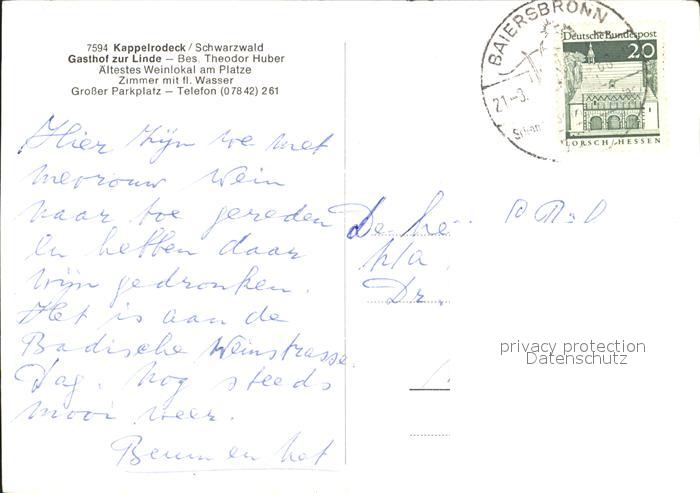 7594 Kappelrodeck / Schwarzwald
Gasthof zur Linde – Bes. Theodor Huber
Ältestes Weinlokal am Platze
Zimmer mit fl. Wasser
Großer Parkplatz – Telefon (07842) 261
BAIERSBRONN
21-9.
Deutsche Bundespost
20
LORSCH/HESSEN
Hier zijn we met
mevrouw Wein
naar toe gereden
En hebben daar
wijn gedronken.
Het is aan de
Badische Weinstrasse.
Dag. Nog steeds
mooi weer.
en het
De he
h/a
Dr.
privacy protection
Datenschutz